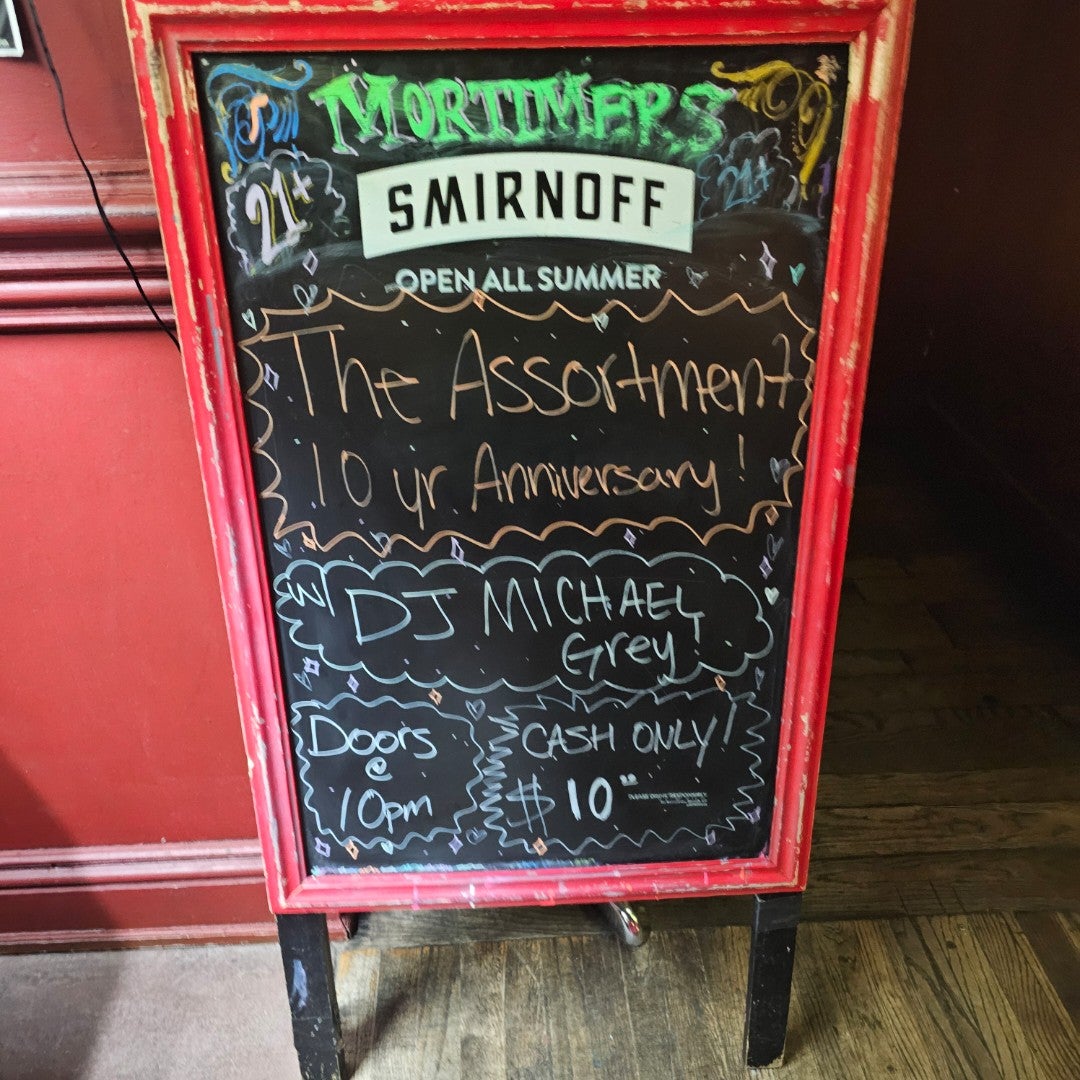 MORTIMERS
21+
SMIRNOFF
21+
OPEN ALL SUMMER
The Assortment
10 yr Anniversary!
w/ DJ MICHAEL
Grey
Doors
@
10pm
CASH ONLY!
$10